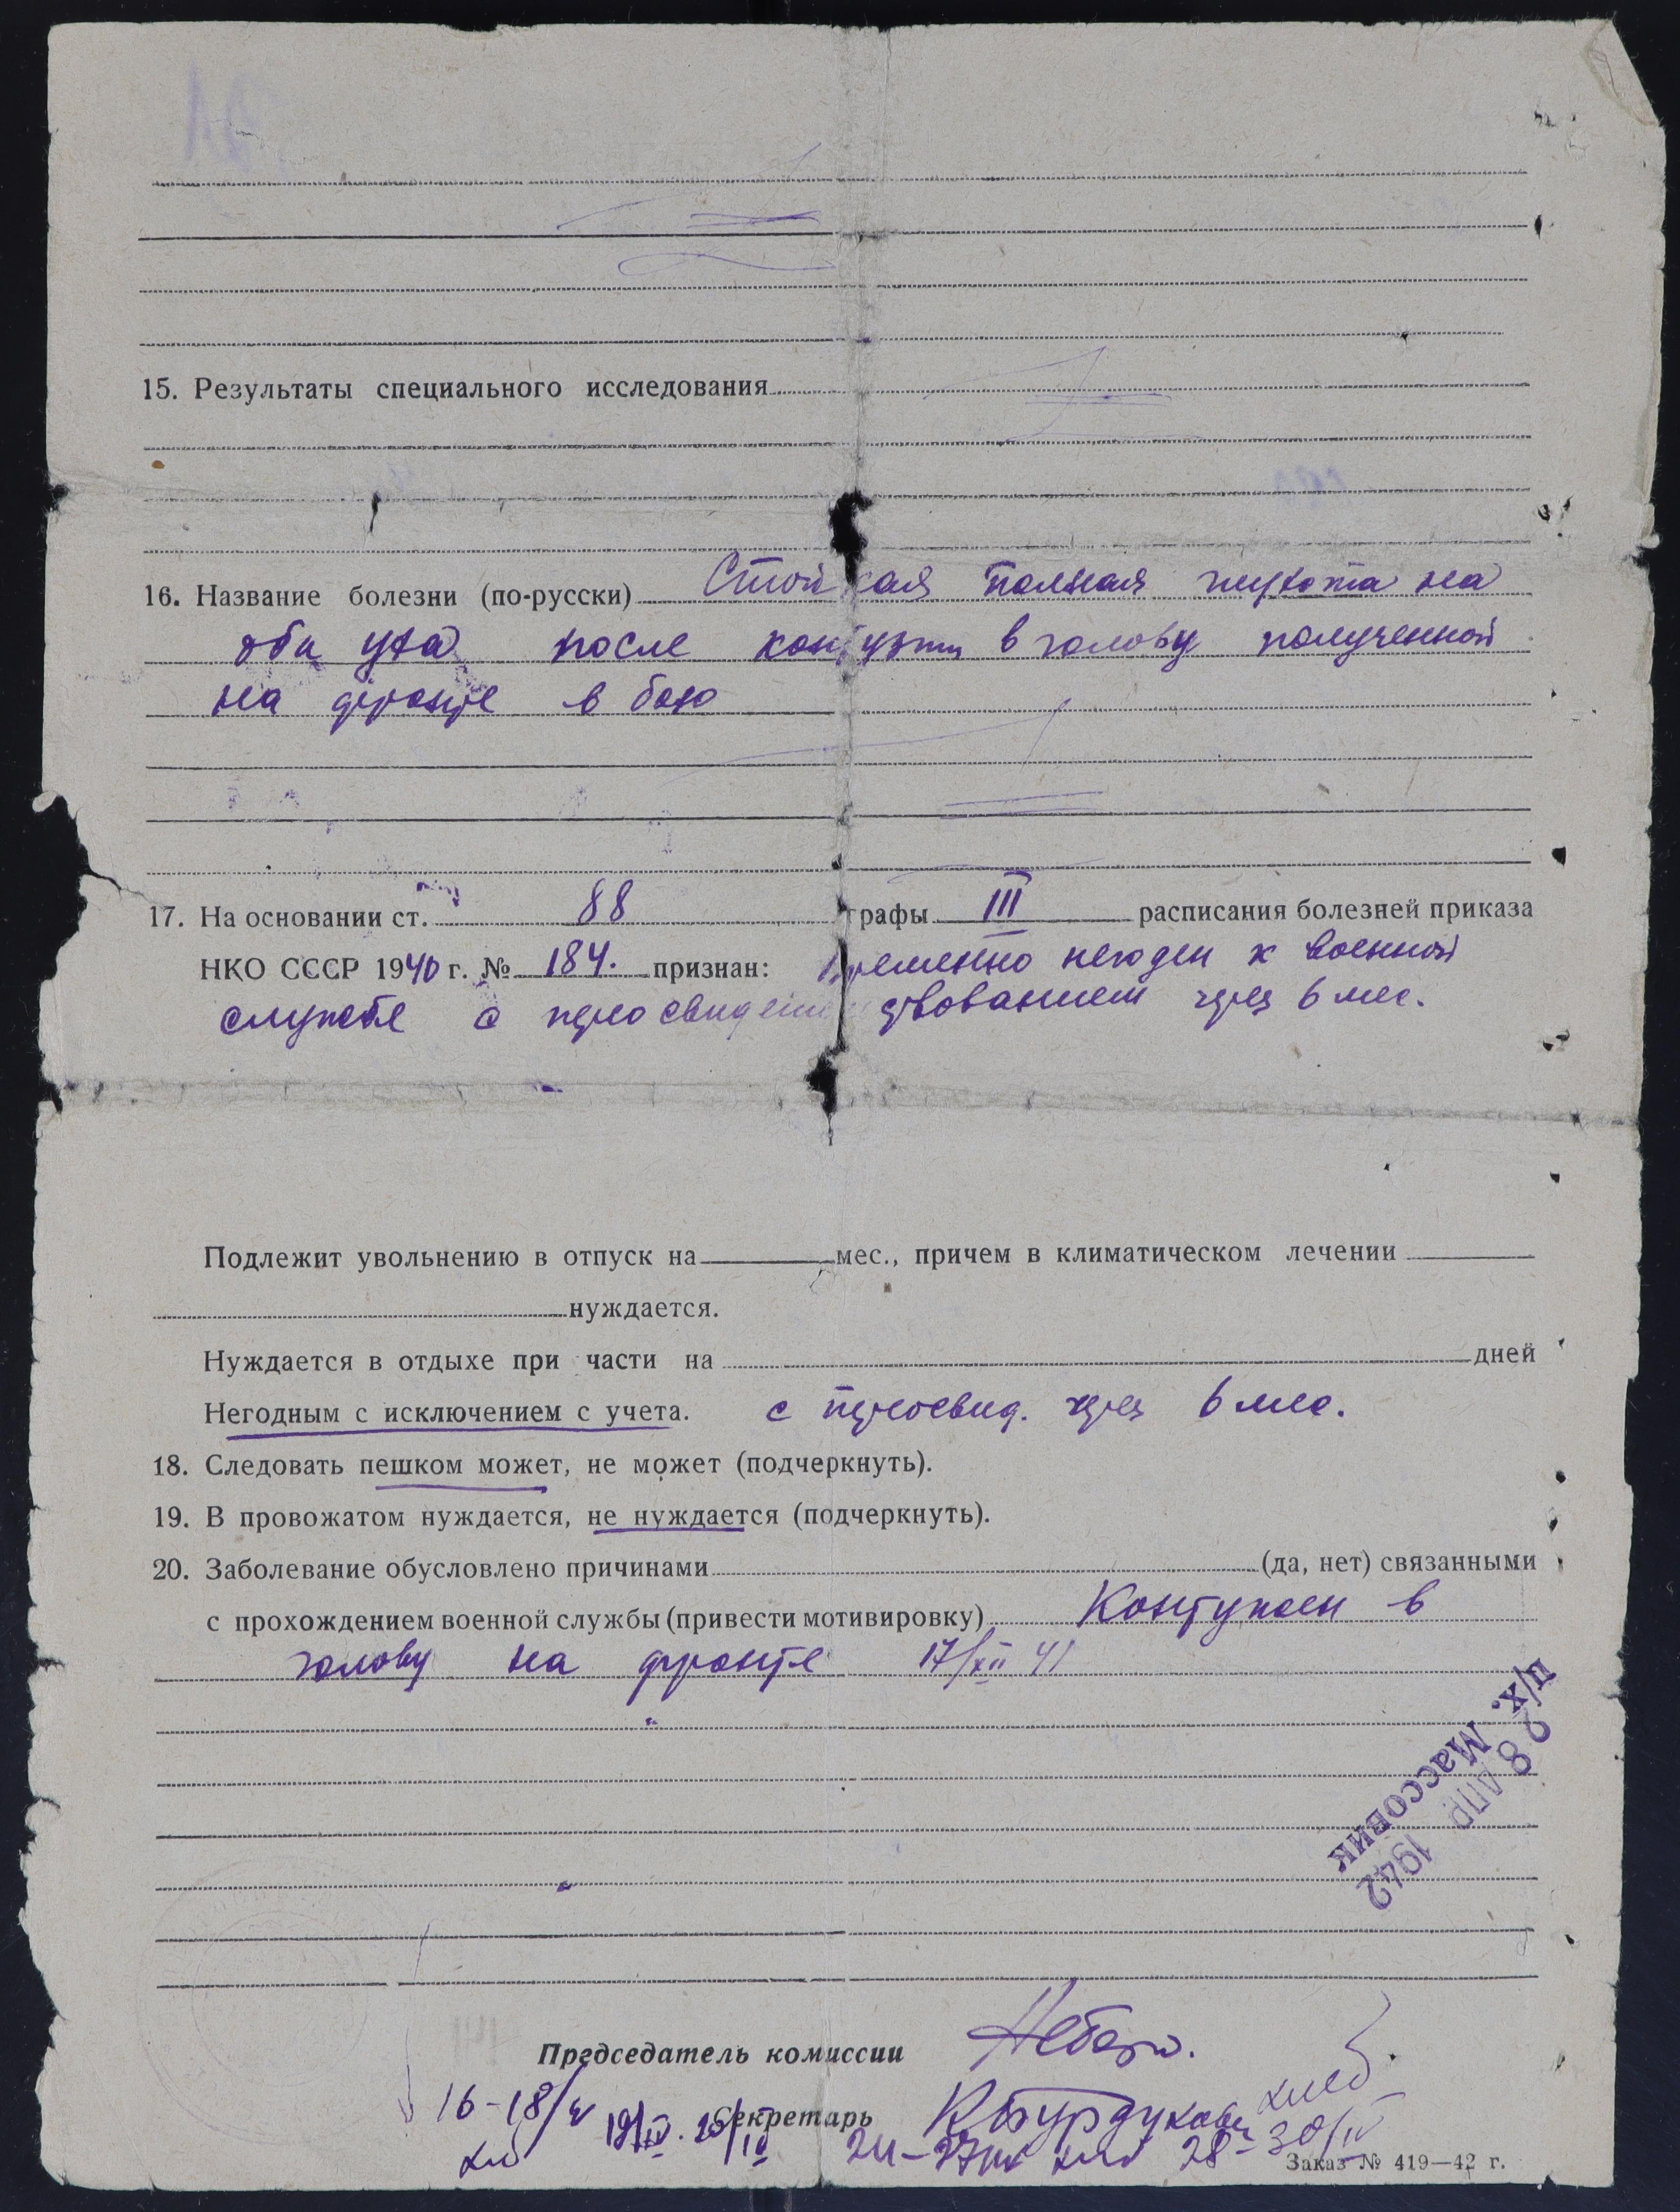 15. Результаты специального исследования
16. Название болезни (по-русски) Стойкая полная глухота на
оба уха после контузии в голову полученной
на фронте в бою
17. На основании ст. 88 графы III расписания болезней приказа
НКО СССР 1940 г. № 184. признан: Временно негоден к военной
службе с переосвидетельствованием через 6 мес.
Подлежит увольнению в отпуск на мес., причем в климатическом лечении
нуждается.
Нуждается в отдыхе при части на дней
Негодным с исключением с учета. с переосвид. через 6 мес.
18. Следовать пешком может, не может (подчеркнуть).
19. В провожатом нуждается, не нуждается (подчеркнуть).
20. Заболевание обусловлено причинами (да, нет) связанными
с прохождением военной службы (привести мотивировку) Контужен в
голову на фронте 17/XII 41
п/х. Массовик
28 АПР 1942
Председатель комиссии
16-18/IV хлеб
Секретарь
19/IV. 20/IV
24-27/IV хлеб 28-30/IV
Заказ № 419—42 г.